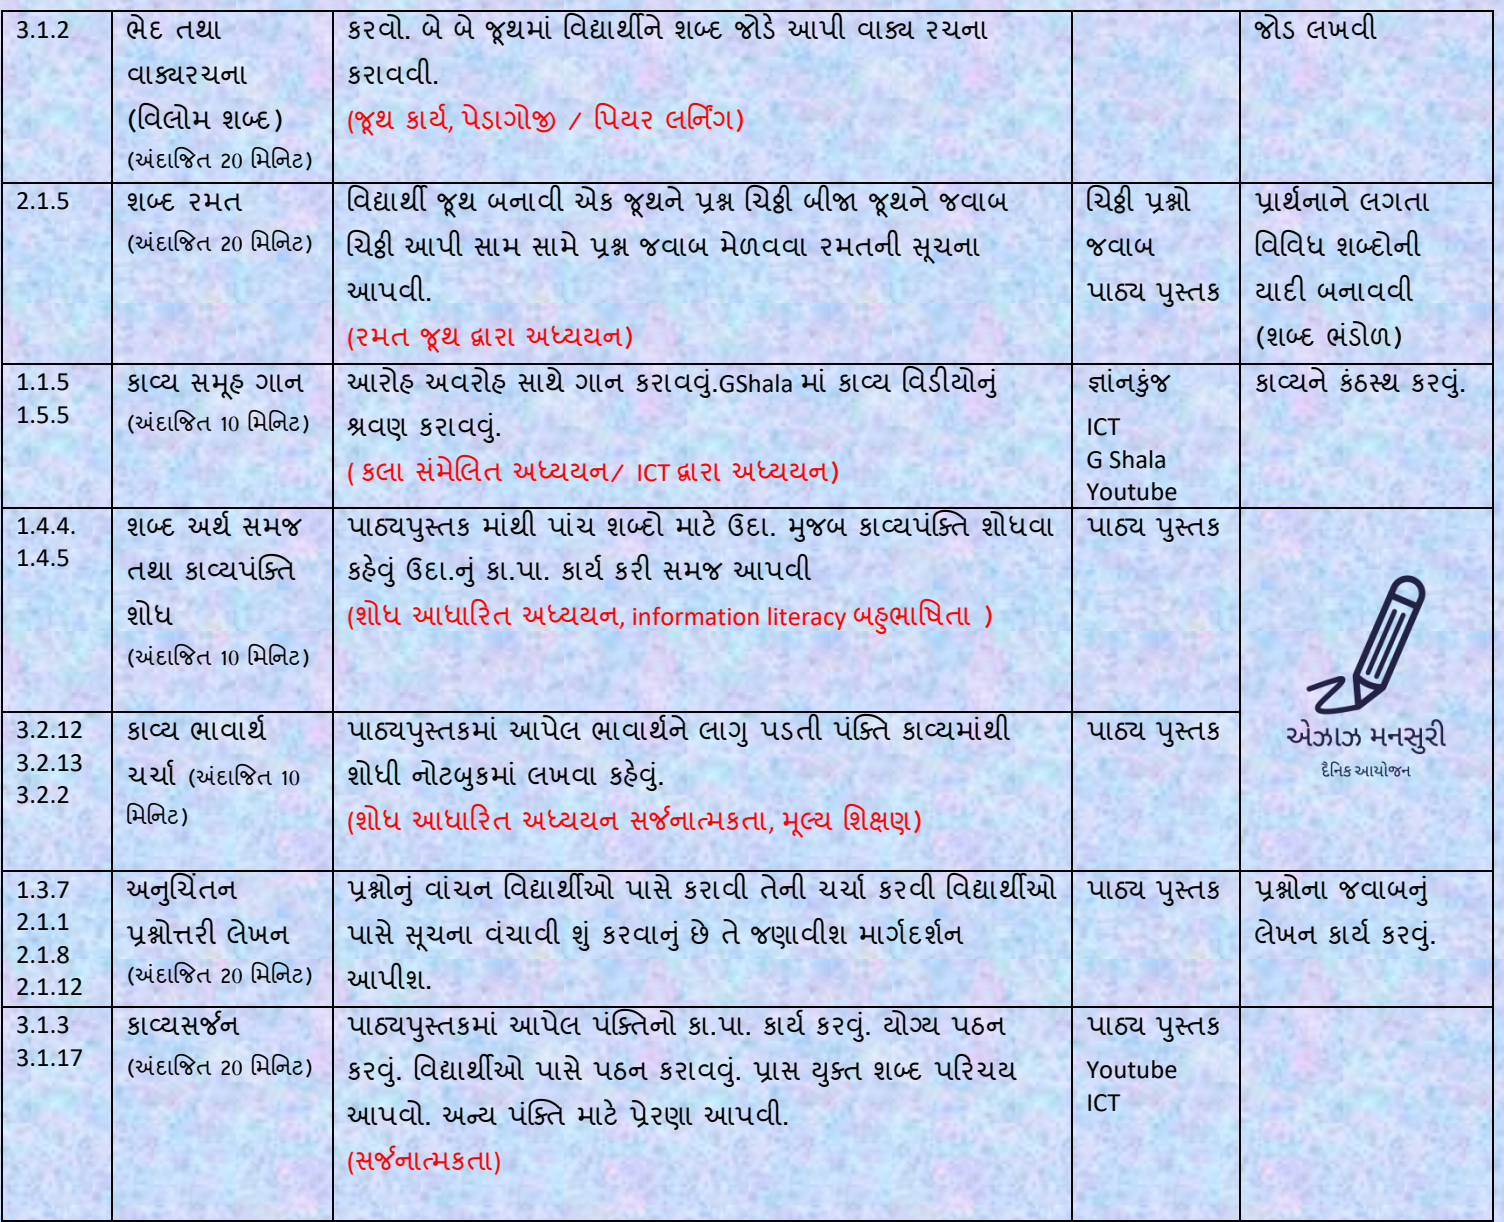 3.1.2
ભેદ તથા
વાક્યરચના
(વિલોમ શબ્દ)
(અંદાજિત 20 મિનિટ)
કરવો. બે બે જૂથમાં વિદ્યાર્થીને શબ્દ જોડે આપી વાક્ય રચના
કરાવવી.
(જૂથ કાર્ય, પેડાગોજી / પિયર લર્નિંગ)
જોડ લખવી
2.1.5
શબ્દ રમત
(અંદાજિત 20 મિનિટ)
વિદ્યાર્થી જૂથ બનાવી એક જૂથને પ્રશ્ન ચિઠ્ઠી બીજા જૂથને જવાબ
ચિઠ્ઠી આપી સામ સામે પ્રશ્ન જવાબ મેળવવા રમતની સૂચના
આપવી.
(રમત જૂથ દ્વારા અધ્યયન)
ચિઠ્ઠી પ્રશ્નો
જવાબ
પાઠ્ય પુસ્તક
પ્રાર્થનાને લગતા
વિવિધ શબ્દોની
યાદી બનાવવી
(શબ્દ ભંડોળ)
1.1.5
1.5.5
કાવ્ય સમૂહ ગાન
(અંદાજિત 10 મિનિટ)
આરોહ અવરોહ સાથે ગાન કરાવવું.GShala માં કાવ્ય વિડીયોનું
શ્રવણ કરાવવું.
( કલા સંમેલિત અધ્યયન/ ICT દ્વારા અધ્યયન)
જ્ઞાંનકુંજ
ICT
G Shala
Youtube
કાવ્યને કંઠસ્થ કરવું.
1.4.4.
1.4.5
શબ્દ અર્થ સમજ
તથા કાવ્યપંક્તિ
શોધ
(અંદાજિત 10 મિનિટ)
પાઠ્યપુસ્તક માંથી પાંચ શબ્દો માટે ઉદા. મુજબ કાવ્યપંક્તિ શોધવા
કહેવું ઉદા.નું કા.પા. કાર્ય કરી સમજ આપવી
(શોધ આધારિત અધ્યયન, information literacy બહુભાષિતા )
પાઠ્ય પુસ્તક
એઝાઝ મનસુરી
દૈનિક આયોજન
3.2.12
3.2.13
3.2.2
કાવ્ય ભાવાર્થ
ચર્ચા (અંદાજિત 10
મિનિટ)
પાઠ્યપુસ્તકમાં આપેલ ભાવાર્થને લાગુ પડતી પંક્તિ કાવ્યમાંથી
શોધી નોટબુકમાં લખવા કહેવું.
(શોધ આધારિત અધ્યયન સર્જનાત્મકતા, મૂલ્ય શિક્ષણ)
પાઠ્ય પુસ્તક
1.3.7
2.1.1
2.1.8
2.1.12
અનુચિંતન
પ્રશ્નોત્તરી લેખન
(અંદાજિત 20 મિનિટ)
પ્રશ્નોનું વાંચન વિદ્યાર્થીઓ પાસે કરાવી તેની ચર્ચા કરવી વિદ્યાર્થીઓ
પાસે સૂચના વંચાવી શું કરવાનું છે તે જણાવીશ માર્ગદર્શન
આપીશ.
પાઠ્ય પુસ્તક
પ્રશ્નોના જવાબનું
લેખન કાર્ય કરવું.
3.1.3
3.1.17
કાવ્યસર્જન
(અંદાજિત 20 મિનિટ)
પાઠ્યપુસ્તકમાં આપેલ પંક્તિનો કા.પા. કાર્ય કરવું. યોગ્ય પઠન
કરવું. વિદ્યાર્થીઓ પાસે પઠન કરાવવું. પ્રાસ યુક્ત શબ્દ પરિચય
આપવો. અન્ય પંક્તિ માટે પ્રેરણા આપવી.
(સર્જનાત્મકતા)
પાઠ્ય પુસ્તક
Youtube
ICT